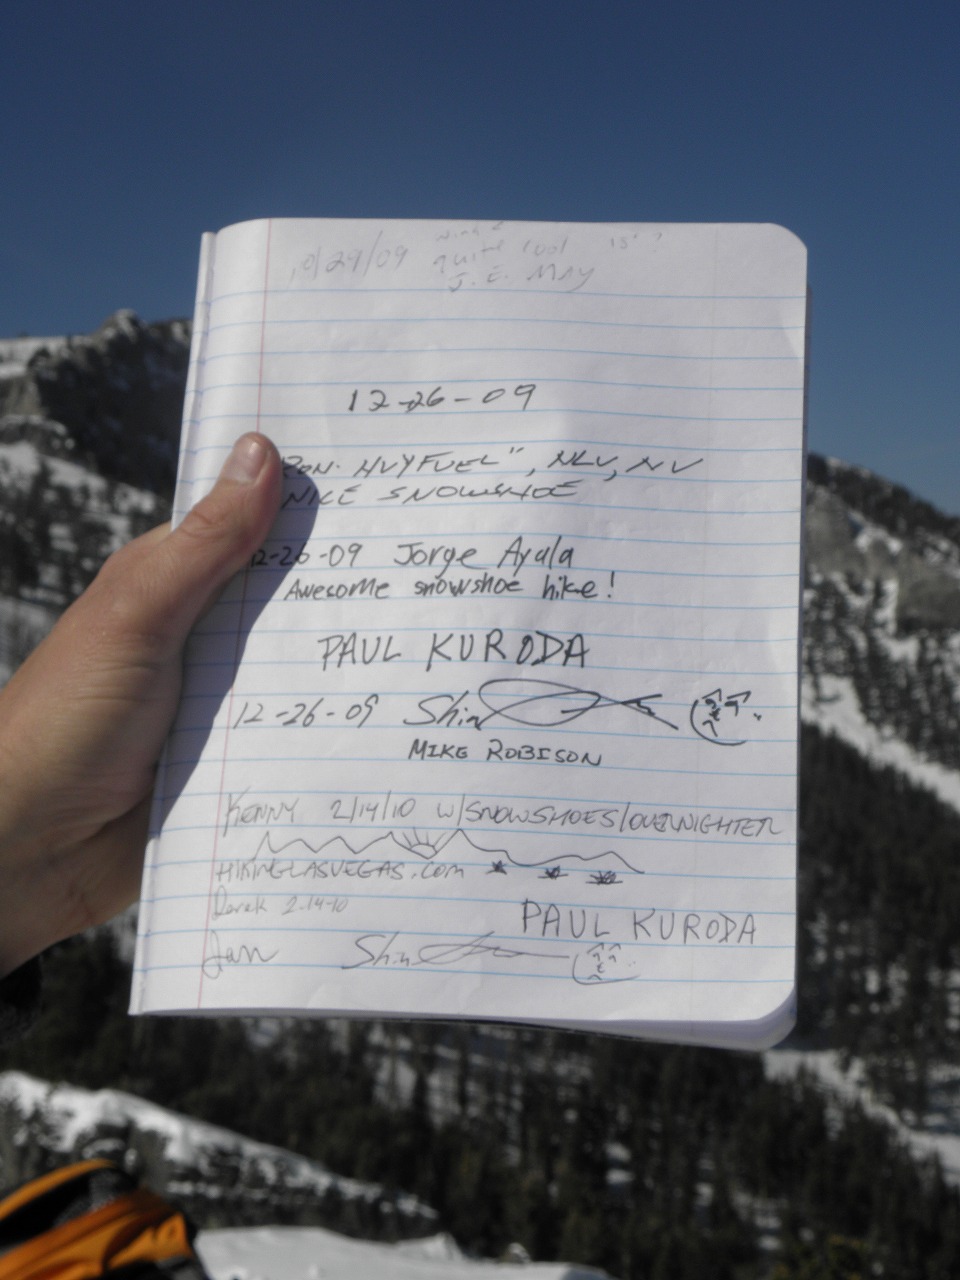 10/29/09 quite cool 15°?
J.E. MAY
12-26-09
"RON. HVYFUEL", NLV, NV
NICE SNOWSHOE
12-26-09 Jorge Ayala
Awesome snowshoe hike!
PAUL KURODA
12-26-09 Shin
MIKE ROBISON
KENNY 2/14/10 W/SNOWSHOES/OVERNIGHTER
HIKINGLASVEGAS.COM
Derek 2.14-10
PAUL KURODA
Jan Shin